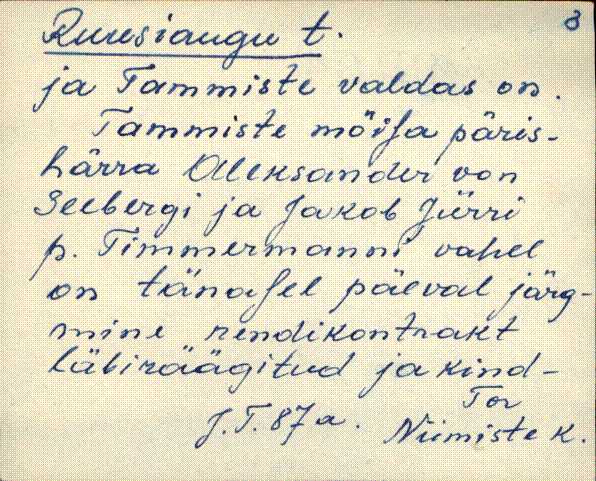 3
Ruusiaugu t.
ja Tammiste valdas on.
Tammiste mõisa päris-
härra Aleksander von
Seebergi ja Jakob Jürri
p. Timmermanni vahel
on tänasel päeval järg-
mine rendikontrakt
läbiräägitud ja kind-
J.T. 87a.
Tor
Niimiste k.